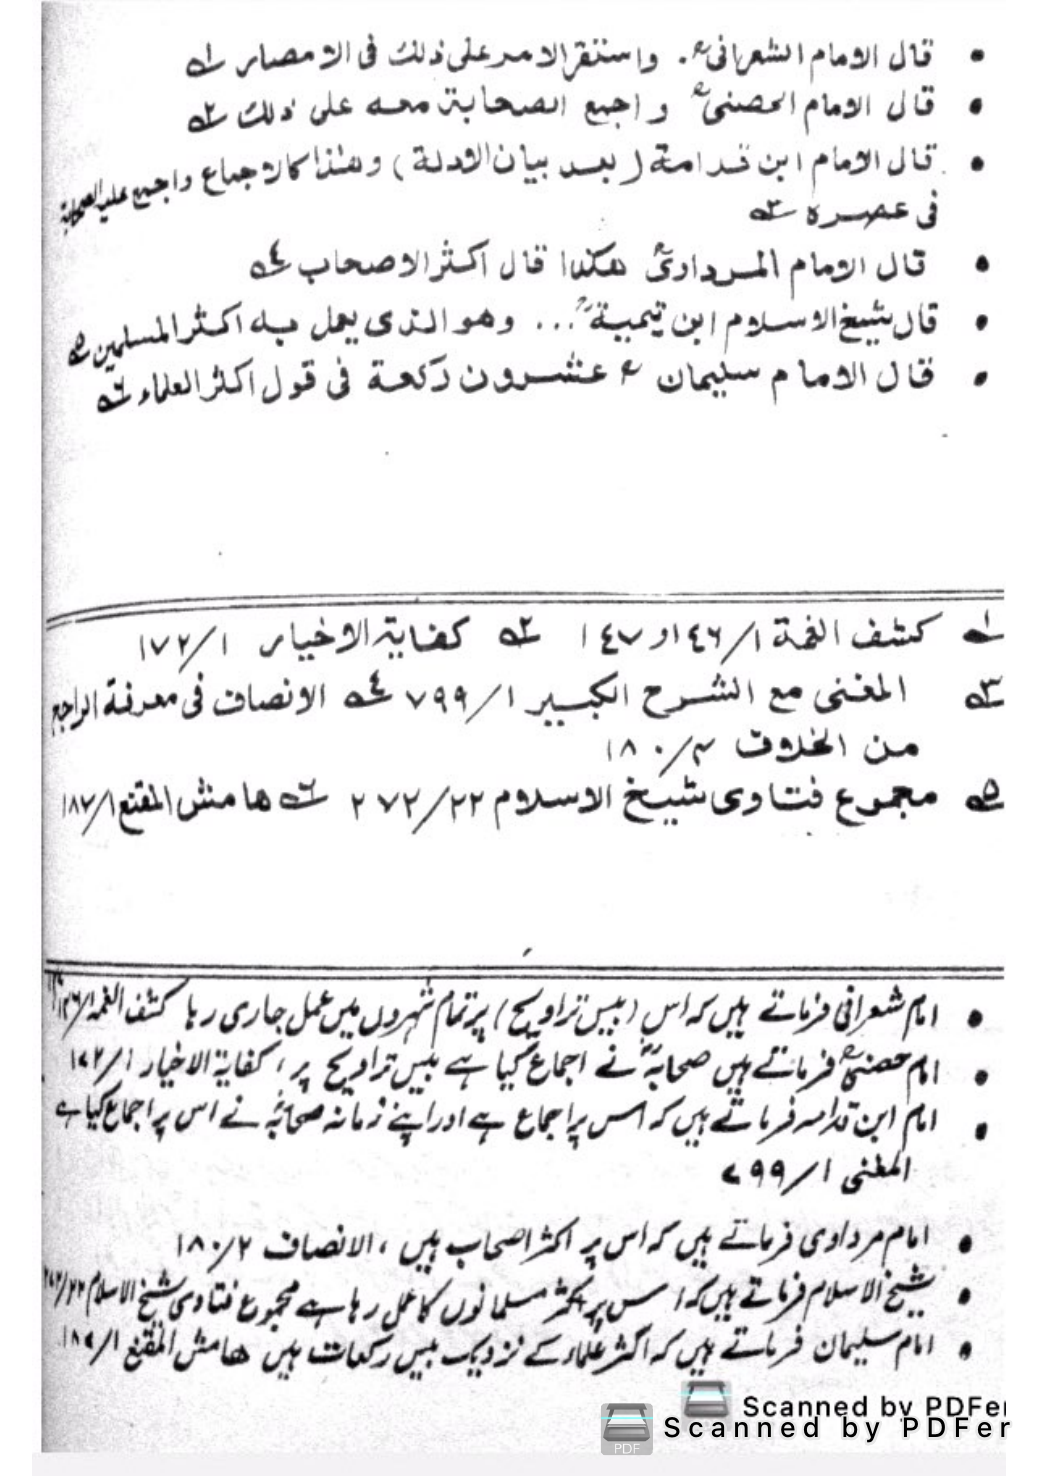 • قال الامام الشعرانیؒ. واستقر الامر علی ذلك فی الامصار ؎۱
• قال الامام الحصنیؒ و اجمع الصحابة معه علی ذلك ؎۲
• قال الامام ابن قدامة (بعد بیان الادلة) وهذا کالاجماع واجمع علیه الصحابة
فی عصره ؎۳
• قال الامام المرداویؒ هکذا قال اکثر الاصحاب ؎٤
• قال شیخ الاسلام ابن تیمیةؒ ... وهو الذی یعمل به اکثر المسلمین ؎۵
• قال الامام سلیمان ؒ عشرون رکعة فی قول اکثر العلماء ؎٦
؎۱ کشف الغمة ۱/۱٤٦ او ۱٤۷ ؎۲ کفایة الاخیار ۱/۱۷۲
؎۳ المغنی مع الشرح الکبیر ۱/۷۹۹ ؎٤ الانصاف فی معرفة الراجع
من الخلاف ۲/۱۸۰
؎۵ مجموع فتاوی شیخ الاسلام ۲۲/۲۷۲ ؎٦ هامش المقنع ۱/۱۸۷
• امام شعرانی فرماتے ہیں کہ اس (بیس تراویح) پر تمام شہروں میں عمل جاری رہا کشف الغمہ ۱/۱۴۶
• امام حصنیؒ فرماتے ہیں صحابہؓ نے اجماع کیا ہے بیس تراویح پر، کفایة الاخیار ۱/۱۷۲
• امام ابن قدامہ فرماتے ہیں کہ اس پر اجماع ہے اور اپنے زمانہ صحابہؓ نے اس پر اجماع کیا ہے
المغنی ۱/۷۹۹
• امام مرداوی فرماتے ہیں کہ اس پر اکثر اصحاب ہیں، الانصاف ۲/۱۸۰
• شیخ الاسلام فرماتے ہیں کہ اس پر اکثر مسلمانوں کا عمل رہا ہے مجموع فتاوی شیخ الاسلام ۲۲/۲۷۲
• امام سلیمان فرماتے ہیں کہ اکثر علماء کے نزدیک بیس رکعات ہیں هامش المقنع ۱/۱۸۷
Scanned by PDFer
Scanned by PDFer
PDF